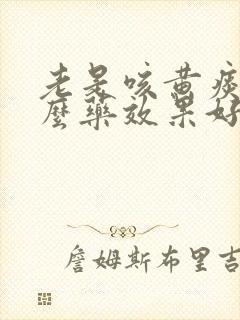 老是咳黄痰
麼藥效果好
詹姆斯布里吉